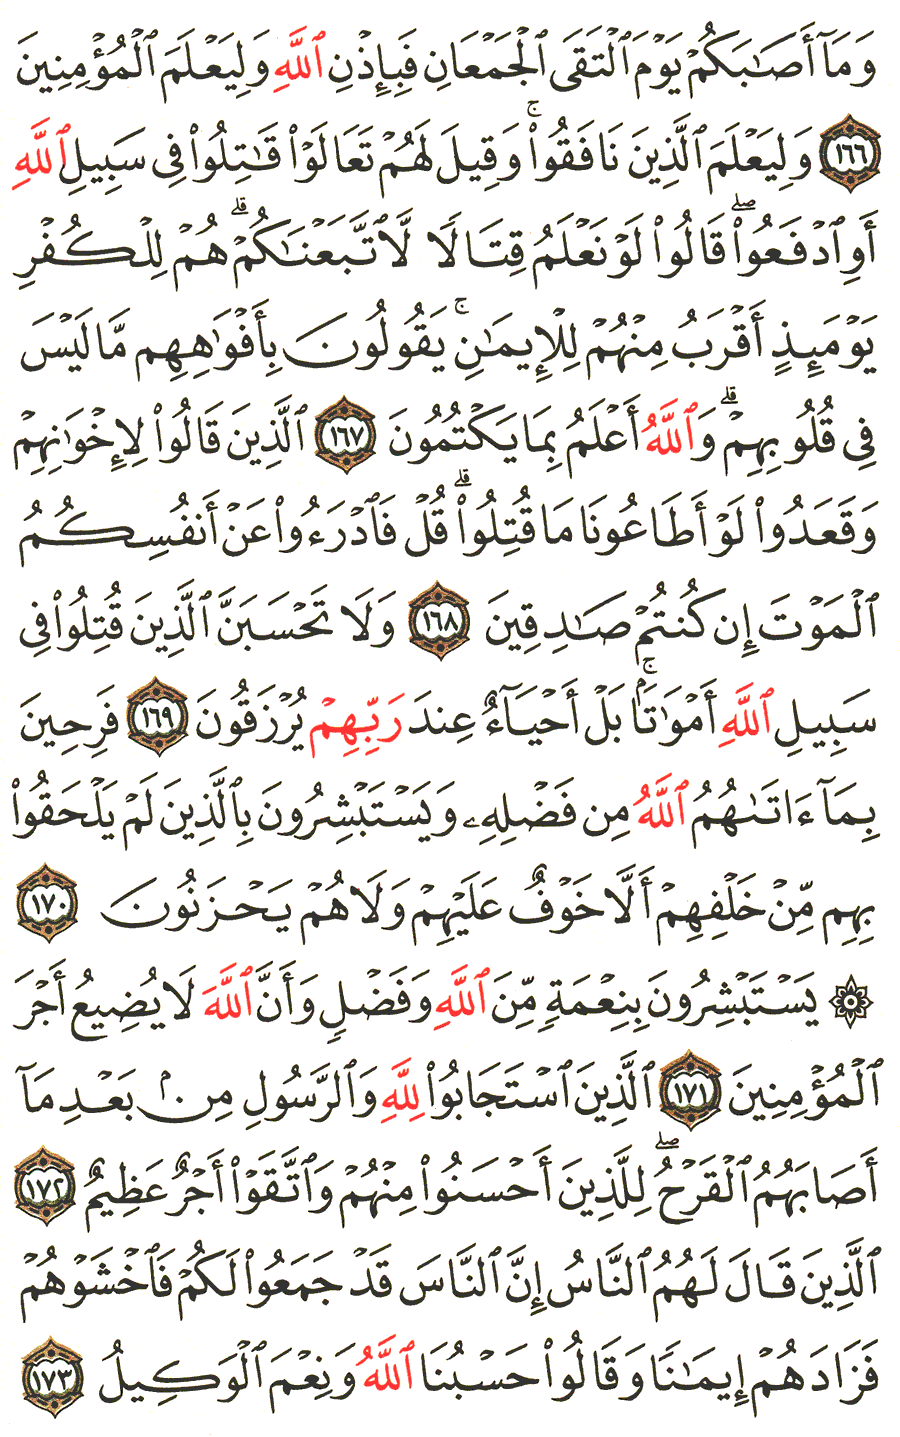 وَمَآ أَصَـٰبَكُمْ يَوْمَ ٱلْتَقَى ٱلْجَمْعَانِ فَبِإِذْنِ ٱللَّهِ وَلِيَعْلَمَ ٱلْمُؤْمِنِينَ
١٦٦ وَلِيَعْلَمَ ٱلَّذِينَ نَافَقُوا۟ ۚ وَقِيلَ لَهُمْ تَعَالَوْا۟ قَـٰتِلُوا۟ فِى سَبِيلِ ٱللَّهِ
أَوِ ٱدْفَعُوا۟ ۖ قَالُوا۟ لَوْ نَعْلَمُ قِتَالًا لَّٱتَّبَعْنَـٰكُمْ ۗ هُمْ لِلْكُفْرِ
يَوْمَئِذٍ أَقْرَبُ مِنْهُمْ لِلْإِيمَـٰنِ ۚ يَقُولُونَ بِأَفْوَٰهِهِم مَّا لَيْسَ
فِى قُلُوبِهِمْ ۗ وَٱللَّهُ أَعْلَمُ بِمَا يَكْتُمُونَ ١٦٧ ٱلَّذِينَ قَالُوا۟ لِإِخْوَٰنِهِمْ
وَقَعَدُوا۟ لَوْ أَطَاعُونَا مَا قُتِلُوا۟ ۗ قُلْ فَٱدْرَءُوا۟ عَنْ أَنفُسِكُمُ
ٱلْمَوْتَ إِن كُنتُمْ صَـٰدِقِينَ ١٦٨ وَلَا تَحْسَبَنَّ ٱلَّذِينَ قُتِلُوا۟ فِى
سَبِيلِ ٱللَّهِ أَمْوَٰتًۢا ۚ بَلْ أَحْيَآءٌ عِندَ رَبِّهِمْ يُرْزَقُونَ ١٦٩ فَرِحِينَ
بِمَآ ءَاتَىٰهُمُ ٱللَّهُ مِن فَضْلِهِۦ وَيَسْتَبْشِرُونَ بِٱلَّذِينَ لَمْ يَلْحَقُوا۟
بِهِم مِّنْ خَلْفِهِمْ أَلَّا خَوْفٌ عَلَيْهِمْ وَلَا هُمْ يَحْزَنُونَ ١٧٠
۞ يَسْتَبْشِرُونَ بِنِعْمَةٍ مِّنَ ٱللَّهِ وَفَضْلٍ وَأَنَّ ٱللَّهَ لَا يُضِيعُ أَجْرَ
ٱلْمُؤْمِنِينَ ١٧١ ٱلَّذِينَ ٱسْتَجَابُوا۟ لِلَّهِ وَٱلرَّسُولِ مِنۢ بَعْدِ مَآ
أَصَابَهُمُ ٱلْقَرْحُ ۖ لِلَّذِينَ أَحْسَنُوا۟ مِنْهُمْ وَٱتَّقَوْا۟ أَجْرٌ عَظِيمٌ ١٧٢
ٱلَّذِينَ قَالَ لَهُمُ ٱلنَّاسُ إِنَّ ٱلنَّاسَ قَدْ جَمَعُوا۟ لَكُمْ فَٱخْشَوْهُمْ
فَزَادَهُمْ إِيمَـٰنًا وَقَالُوا۟ حَسْبُنَا ٱللَّهُ وَنِعْمَ ٱلْوَكِيلُ ١٧٣